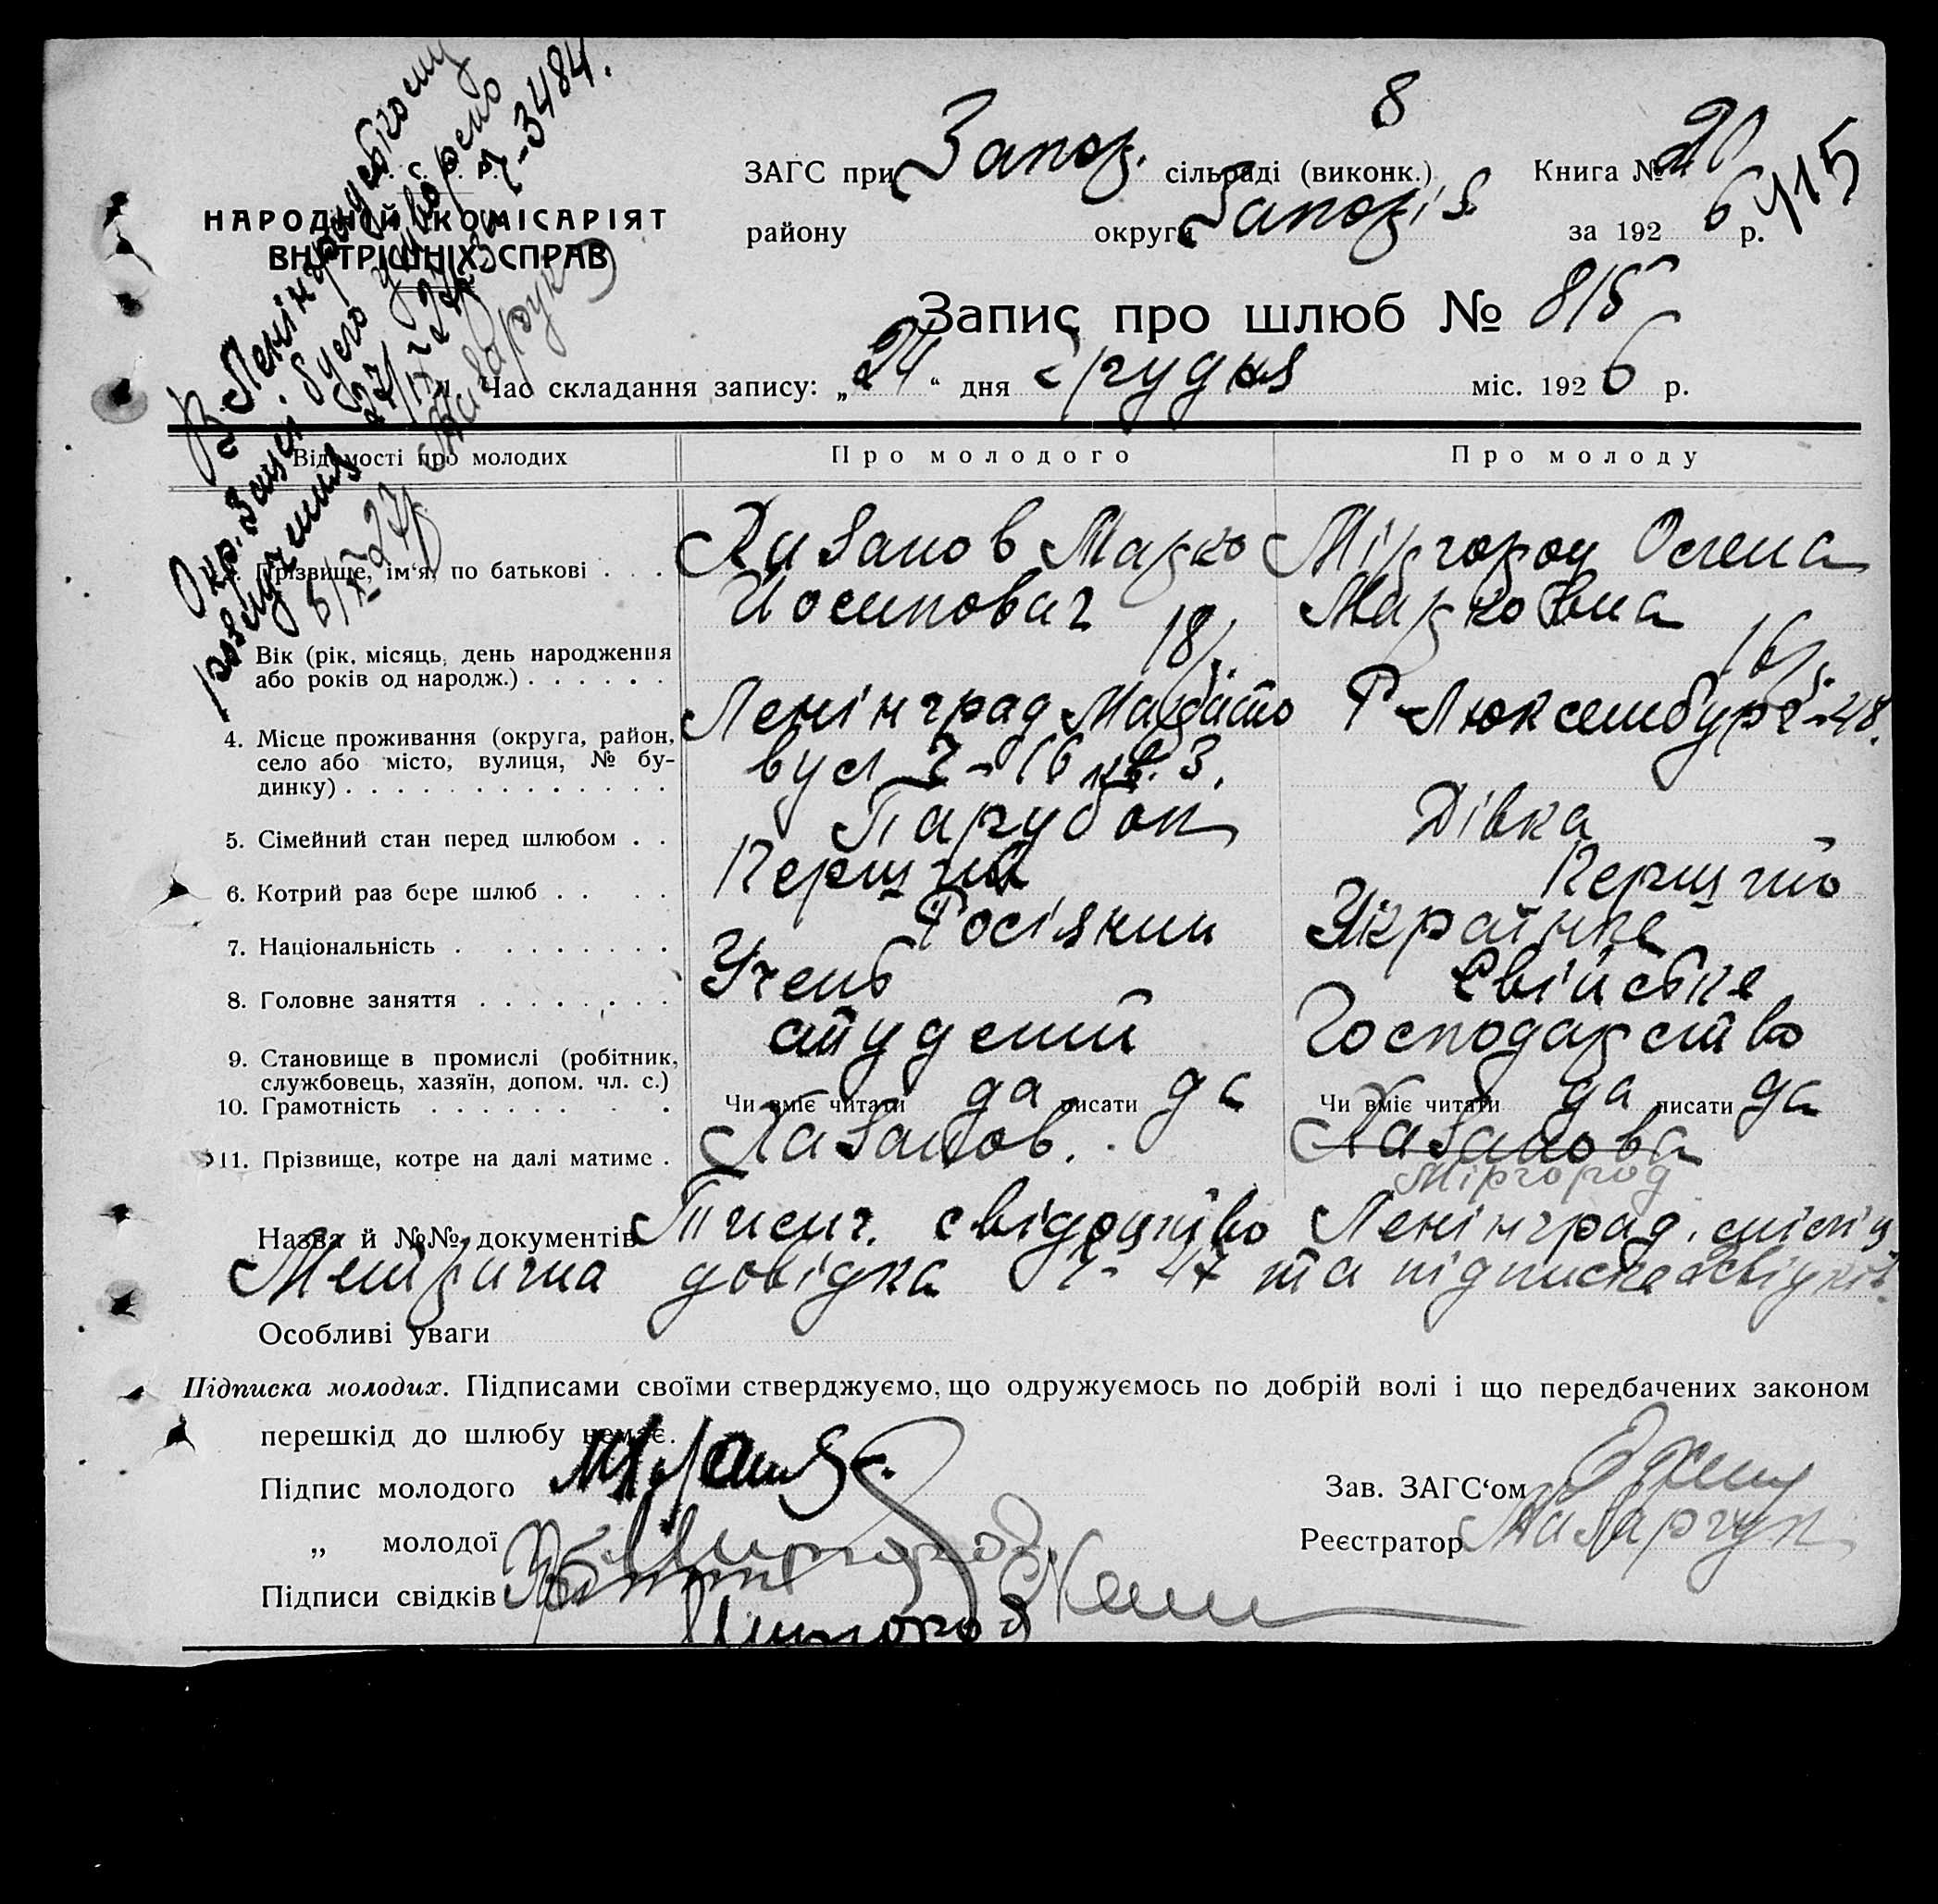 8
ЗАГС при Запор. сільраді (виконк.) Книга № 20
району округи Запоріз. за 1926 р.
415
НАРОДНІЙ КОМІСАРІЯТ
ВНУТРІШНІХ СПРАВ
Запис про шлюб № 815
Час складання запису: „24“ дня грудня міс. 1926 р.
В Ленінградському
Окр. Загсі було утворено
розлучення 27/ №-3484.
Відомості про молодих Про молодого Про молоду
Прізвище, ім'я, по батькові Марко Міргород Олена
Йосипович Марковна
Вік (рік, місяць, день народження 18 16
або років од народж.)
4. Місце проживання (округа, район, Ленінград Р-Люксембург-48.
село або місто, вулиця, № бу- вул 16 кв. 3.
динку)
5. Сімейний стан перед шлюбом Парубок Дівка
6. Котрий раз бере шлюб Перший Перший
7. Національність Росіянин Українка
8. Головне заняття Учень Свійське
9. Становище в промислі (робітник, студент Господарство
службовець, хазяїн, допом. чл. с.)
10. Грамотність Чи вміє читати да писати да Чи вміє читати да писати да
11. Прізвище, котре на далі матиме
Міргород
Назва й №№ документів Тисяч. свідоцтво Ленінград.
Метрична довідка 47 та підписка свідків
Особливі уваги
Підписка молодих. Підписами своїми стверджуємо, що одружуємось по добрій волі і що передбачених законом
перешкід до шлюбу немає.
Підпис молодого Зав. ЗАГС‘ом
„ молодої Реєстратор
Підписи свідків